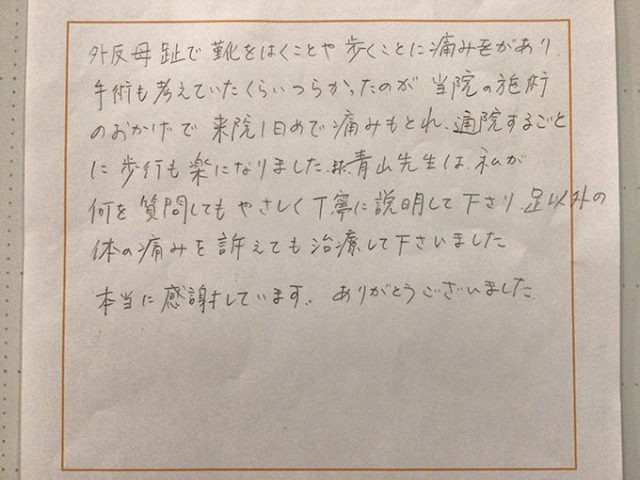 外反母趾で靴をはくことや歩くことに痛みをがあり、
手術も考えていたくらいつらかったのが当院の施術
のおかげで来院1日めで痛みもとれ、通院するごと
に歩行も楽になりました。青山先生は、私が
何を質問してもやさしく丁寧に説明して下さり、足以外の
体の痛みを訴えても治療して下さいました
本当に感謝しています。ありがとうございました。